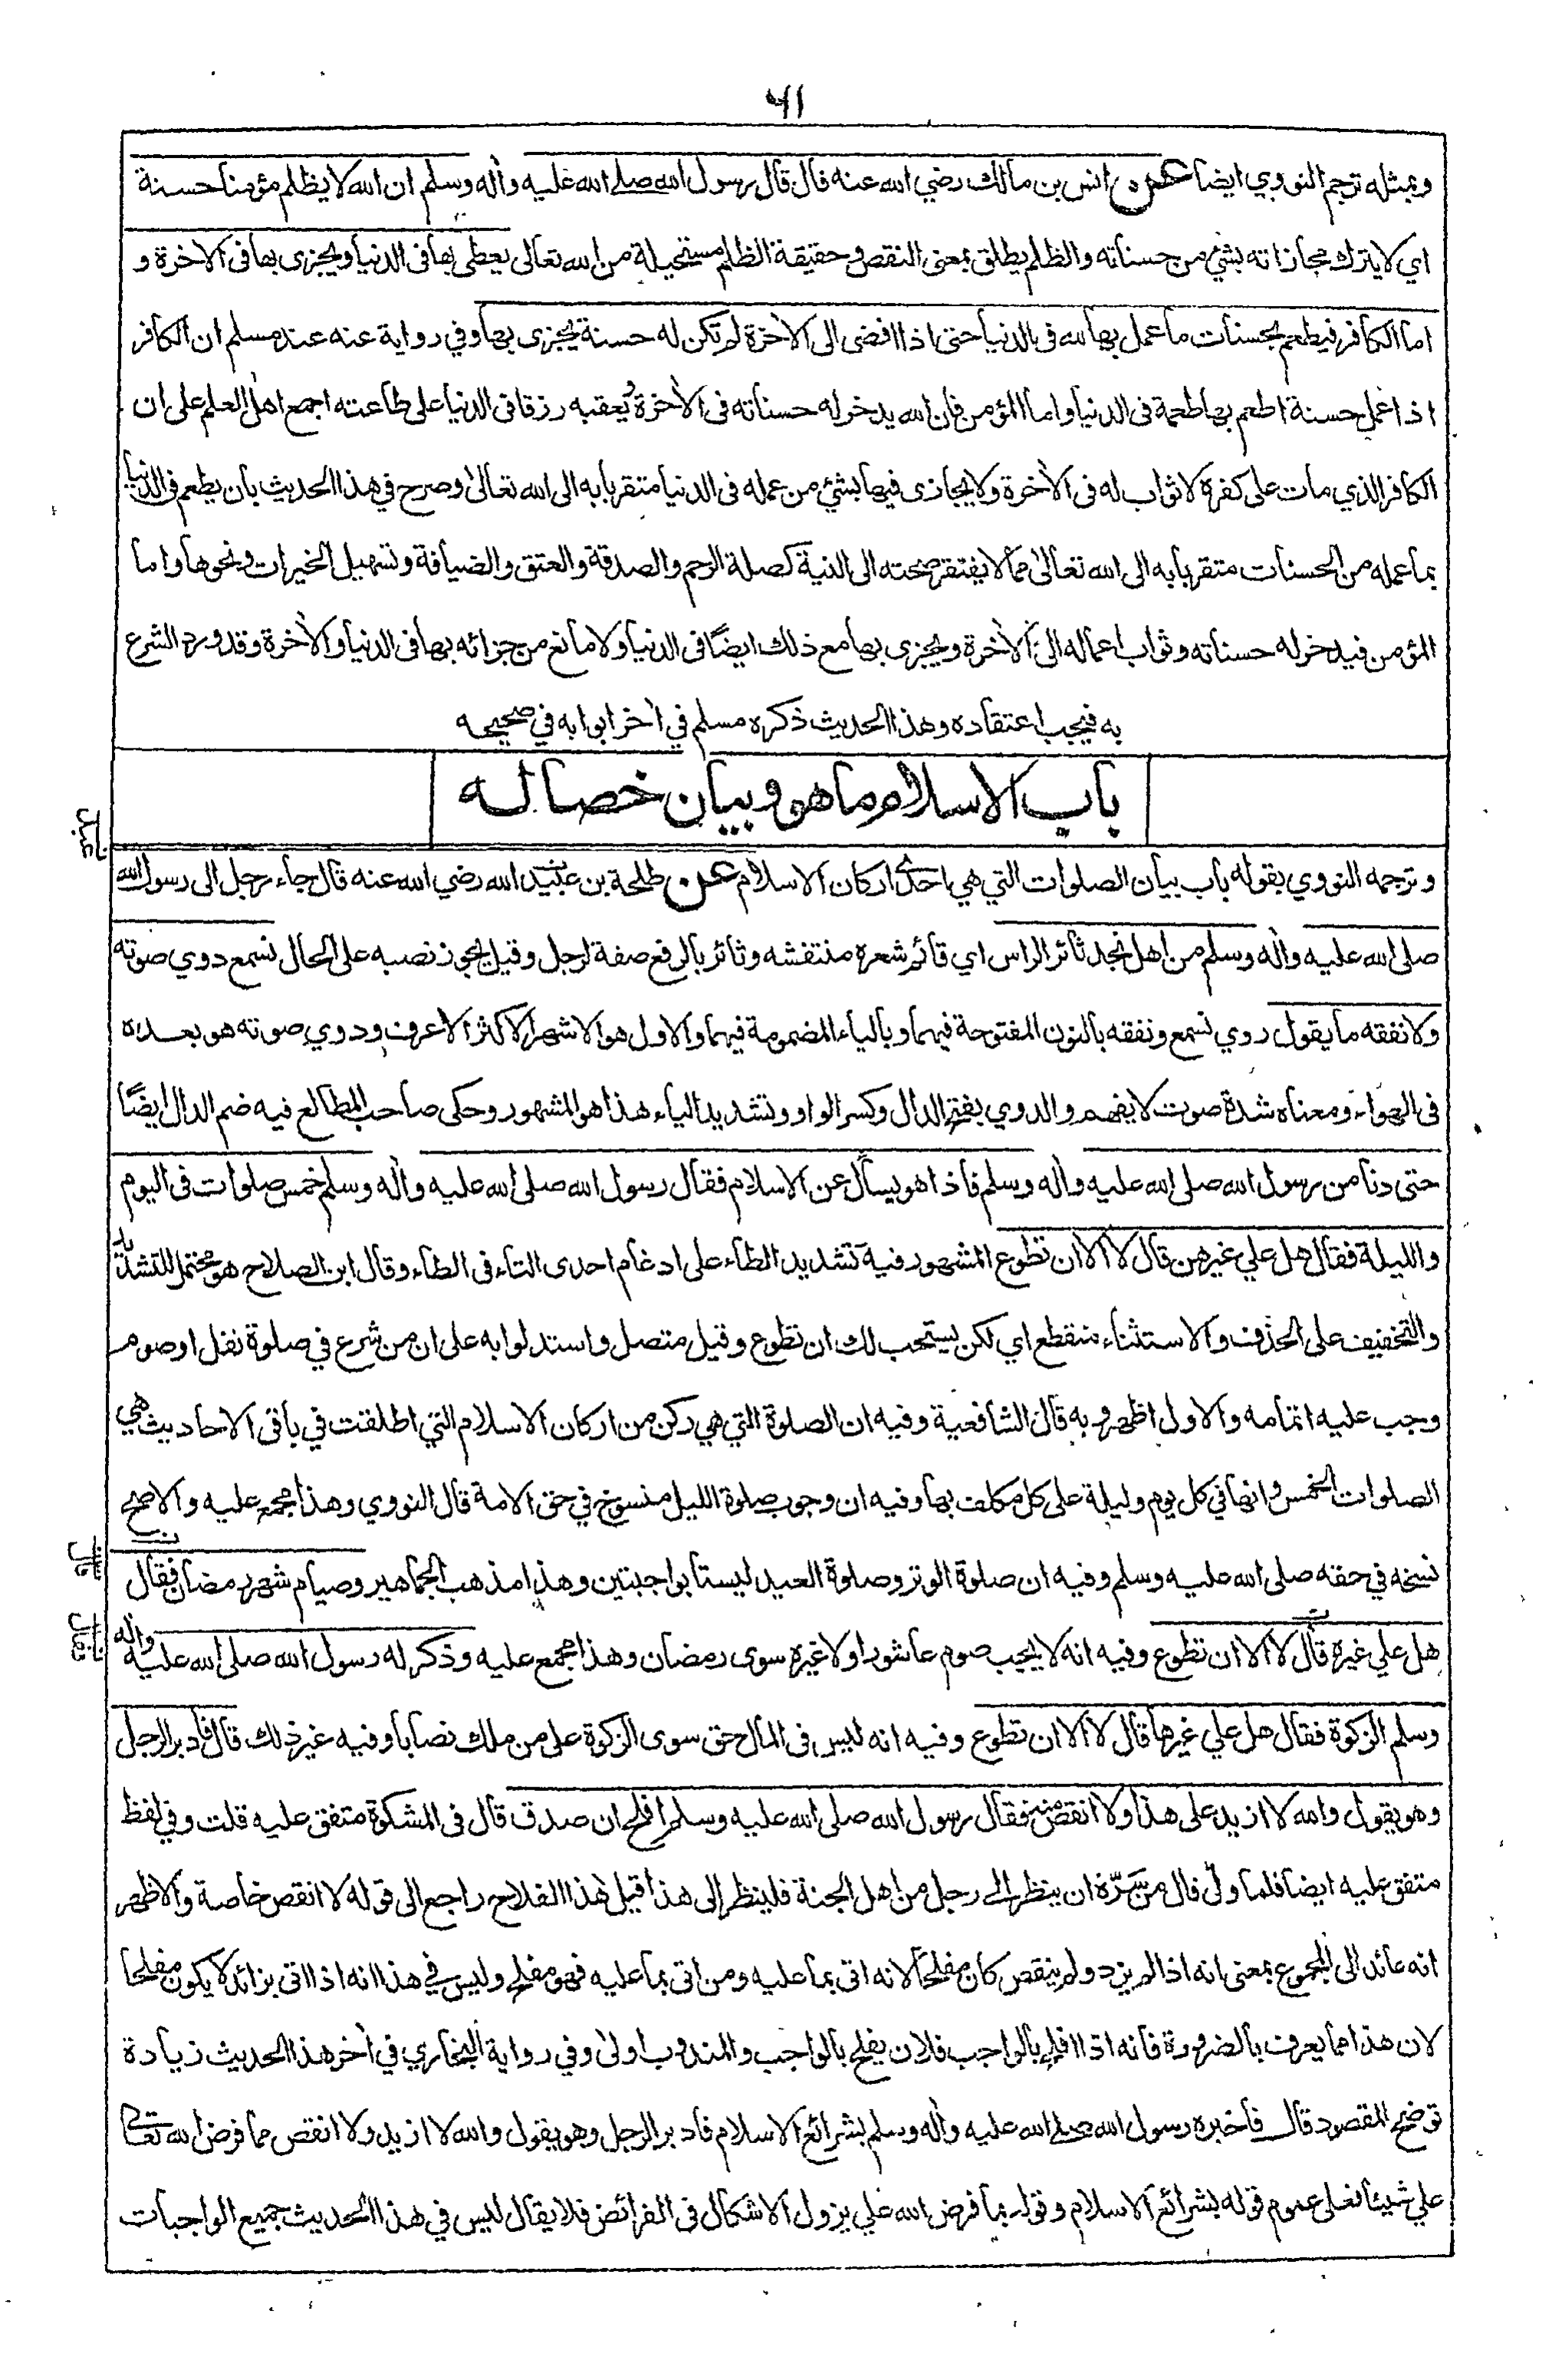 ٦١
وبمثله ترجم النووي ايضا عن انس بن مالك رضي الله عنه قال قال رسول الله صلى الله عليه وأله وسلم ان الله لا يظلم مؤمنا حسنة
اي لا يترك مجازاته بشئ من حسناته والظلم يطلق بمعنى النقص وحقيقة الظلم مستحيلة من الله تعالى يعطى بها فى الدنيا ويجزى بها فى الاخرة و
اما الكافر فيطعم بحسنات ما عمل بها لله فى الدنيا حتى اذا افضى الى الأخرة لم تكن له حسنة يجزى بها وفي رواية عنه عند مسلم ان الكافر
اذا عمل حسنة اطعم بها طعمة فى الدنيا واما المؤمن فإن الله يدخر له حسناته فى الأخرة ويعقبه رزقا فى الدنيا على طاعته اجمع اهل العلم على ان
الكافر الذي مات على كفره لا ثواب له فى الأخرة ولا يجازى فيها بشئ من عمله فى الدنيا متقربا به الى الله تعالى وصرح في هذا الحديث بان يطعم فى الدنيا
بما عمله من الحسنات متقربا به الى الله تعالى مما لا يفتقر صحته الى النية كصلة الرحم والصدقة والعتق والضيافة وتسهيل الخيرات ونحوها واما
المؤمن فيدخر له حسناته وثواب اعماله الى الأخرة ويجزى بها مع ذلك ايضًا فى الدنيا ولا مانع من جزائه بها فى الدنيا والأخرة وقد ورد الشرع
به فيجب اعتقاده وهذا الحديث ذكره مسلم في أخر ابوابه في صحيحه
باب الاسلام ما هو وبيان خصاله
وترجمه النووي بقوله باب بيان الصلوات التي هي احد اركان الاسلام عن طلحة بن عبيد الله رضي الله عنه قال جاء رجل الى رسول الله
صلى الله عليه وأله وسلم من اهل نجد ثائر الراس اي قائم شعره منتفشه وثائر بالرفع صفة لرجل وقيل يجوز نصبه على الحال نسمع دوي صوته
ولا نفقه ما يقول روي نسمع ونفقه بالنون المفتوحة فيهما وبالياء المضمومة فيهما والاول هو الاشهر الاكثر الاعرف ودوي صوته هو بعده
فى الهواء ومعناه شدة صوت لا يفهم والدوي بفتح الدال وكسر الواو وتشديد الياء هذا هو المشهور وحكى صاحب المطالع فيه ضم الدال ايضًا
حتى دنا من رسول الله صلى الله عليه وأله وسلم فاذا هو يسأل عن الاسلام فقال رسول الله صلى الله عليه وأله وسلم خمس صلوات فى اليوم
والليلة فقال هل علي غيرهن قال لا الا ان تطوع المشهور فيه تشديد الطاء على ادغام احدى التاء فى الطاء وقال ابن الصلاح هو محتمل للتشديد
والتخفيف على الحذف والاستثناء منقطع اي لكن يستحب لك ان تطوع وقيل متصل واستدلوا به على ان من شرع في صلوة نفل او صوم
وجب عليه اتمامه والاول اظهر وبه قال الشافعية وفيه ان الصلوة التي هي ركن من اركان الاسلام التي اطلقت في باقى الاحاديث هي
الصلوات الخمس وانها في كل يوم وليلة على كل مكلف بها وفيه ان وجوب صلوة الليل منسوخ في حق الامة قال النووي وهذا مجمع عليه والاصح
نسخه في حقه صلى الله عليه وسلم وفيه ان صلوة الوتر وصلوة العيد ليستا بواجبتين وهذا مذهب الجماهير وصيام شهر رمضان فقال
هل علي غيره قال لا الا ان تطوع وفيه انه لا يجب صوم عاشورا ولا غيره سوى رمضان وهذا مجمع عليه وذكر له رسول الله صلى الله عليه وأله
وسلم الزكوة فقال هل علي غيرها قال لا الا ان تطوع وفيه انه ليس فى المال حق سوى الزكوة على من ملك نصابا وفيه غير ذلك قال فادبر الرجل
وهو يقول والله لا ازيد على هذا ولا انقص منه فقال رسول الله صلى الله عليه وسلم افلح ان صدق قال فى المشكوة متفق عليه قلت وفي لفظ
متفق عليه ايضا فلما ولّى قال من سَرّه ان ينظر الى رجل من اهل الجنة فلينظر الى هذا قيل هذا الفلاح راجع الى قوله لا انقص خاصة والاظهر
انه عائد الى المجموع بمعنى انه اذا لم يزد ولم ينقص كان مفلحا لانه اتى بما عليه ومن اتى بما عليه فهو مفلح وليس في هذا انه اذا اتى بزائد لا يكون مفلحا
لان هذا مما يعرف بالضرورة فانه اذا افلح بالواجب فلان يفلح بالواجب والمندوب اولى وفي رواية البخاري في أخر هذا الحديث زيادة
توضح المقصود قال فاخبره رسول الله صلى الله عليه وأله وسلم بشرائع الاسلام فادبر الرجل وهو يقول والله لا ازيد ولا انقص مما فرض الله تعالى
علي شيئا فعلى عموم قوله بشرائع الاسلام وقوله بما فرض الله علي يزول الاشكال فى الفرائض فلا يقال ليس في هذا الحديث جميع الواجبات